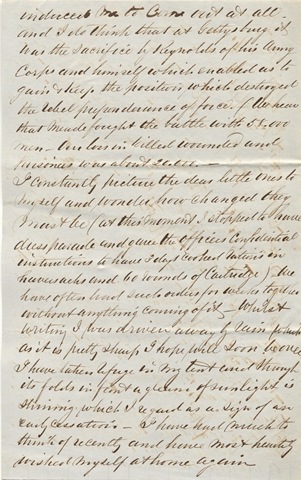 induced me to come out at all -
and I do think that at Gettysburg it
was the sacrifice by Reynolds of his Army
Corps and himself which enabled us to
gain & keep the position which destroyed
the rebel preponderance of force. I hear
that Meade fought the battle with 58,000
men - Our loss in killed wounded and
prisoners was about
I constantly picture the dear little ones to
myself and wonder how changed they
must be (at this moment I stopped to have
dress parade and gave the officers Confidential
instructions to have 3 days cooked rations in
haversacks and 60 rounds of Cartridge) We
have often had such orders for weeks together
without anything coming of it - Whilst
writing I was driven away by rain
as it is pretty sharp I hope will soon be over
I have taken refuge in my tent and through
its folds in front a gleam of sunlight is
shining which I regard as a sign of an
early cessation - I have had much to
think of recently and have most heartily
wished myself at home again